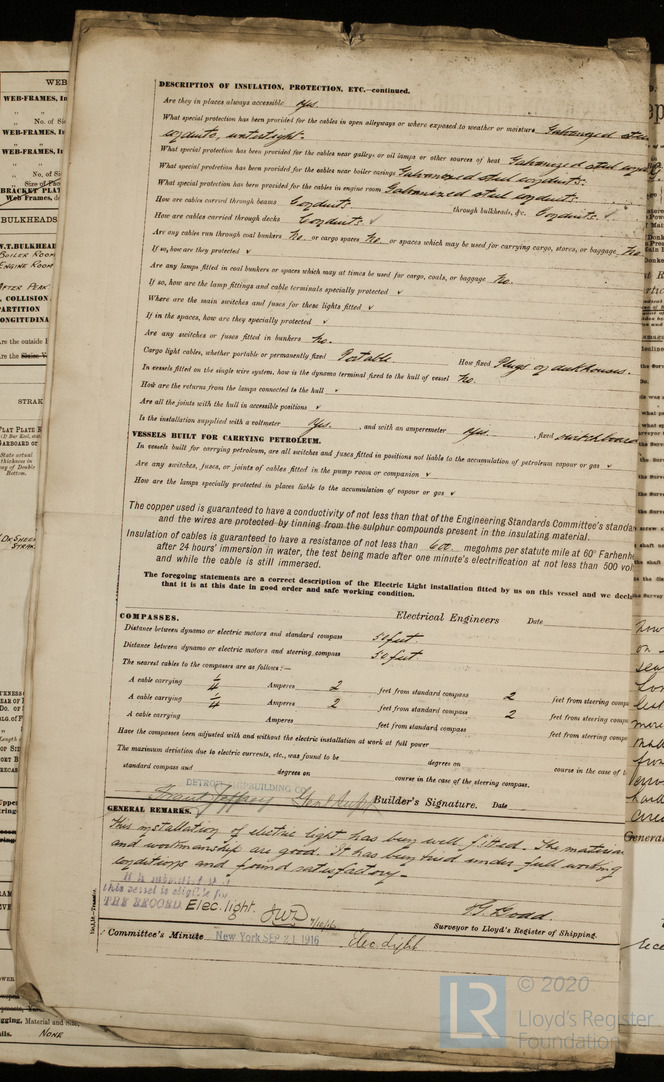 DESCRIPTION OF INSULATION, PROTECTION, ETC.—continued.
Are they in places always accessible yes.
What special protection has been provided for the cables in open alleyways or where exposed to weather or moisture Galvanized steel
conduits, watertight.
What special protection has been provided for the cables near galleys or oil lamps or other sources of heat Galvanized steel
What special protection has been provided for the cables near boiler casings Galvanized steel conduits.
What special protection has been provided for the cables in engine room Galvanized steel conduits.
How are cables carried through beams Conduits through bulkheads, &c. Conduits. ✓
How are cables carried through decks Conduits. ✓
Are any cables run through coal bunkers No. or cargo spaces No. or spaces which may be used for carrying cargo, stores, or baggage No
If so, how are they protected ✓
Are any lamps fitted in coal bunkers or spaces which may at times be used for cargo, coals, or baggage No.
If so, how are the lamp fittings and cable terminals specially protected ✓
Where are the main switches and fuses for these lights fitted ✓
If in the spaces, how are they specially protected ✓
Are any switches or fuses fitted in bunkers No.
Cargo light cables, whether portable or permanently fixed Portable. How fixed Plugs
In vessels fitted on the single wire system, how is the dynamo terminal fixed to the hull of vessel No.
How are the returns from the lamps connected to the hull ✓
Are all the joints with the hull in accessible positions ✓
Is the installation supplied with a voltmeter Yes. , and with an amperemeter Yes. , fixed switchboard
VESSELS BUILT FOR CARRYING PETROLEUM.
In vessels built for carrying petroleum, are all switches and fuses fitted in positions not liable to the accumulation of petroleum vapour or gas ✓
Are any switches, fuses, or joints of cables fitted in the pump room or companion ✓
How are the lamps specially protected in places liable to the accumulation of vapour or gas ✓
The copper used is guaranteed to have a conductivity of not less than that of the Engineering Standards Committee's standa
and the wires are protected by tinning from the sulphur compounds present in the insulating material.
Insulation of cables is guaranteed to have a resistance of not less than 600 megohms per statute mile at 60° Farhenhe
after 24 hours' immersion in water, the test being made after one minute's electrification at not less than 500 vol
and while the cable is still immersed.
The foregoing statements are a correct description of the Electric Light installation fitted by us on this vessel and we decl
that it is at this date in good order and safe working condition.
Electrical Engineers Date
COMPASSES.
Distance between dynamo or electric motors and standard compass 50 feet
Distance between dynamo or electric motors and steering compass 50 feet
The nearest cables to the compasses are as follows:—
A cable carrying 1/4 Amperes 2 feet from standard compass 2 feet from steering comp
A cable carrying 1/4 Amperes 2 feet from standard compass 2 feet from steering comp
A cable carrying Amperes feet from standard compass feet from steering comp
Have the compasses been adjusted with and without the electric installation at work at full power
The maximum deviation due to electric currents, etc., was found to be degrees on course in the case of t
standard compass and degrees on course in the case of the steering compass.
DETROIT SHIPBUILDING CO.
Jeffrey Builder's Signature. Date
GENERAL REMARKS.
This installation of electric light has been well fitted. The material
and workmanship are good. It has been tried under full working
conditions and found satisfactory.
It is submitted that
this vessel is eligible for
THE RECORD. Elec. light. JWD 7/10/16
Surveyor to Lloyd's Register of Shipping.
Committee's Minute New York SEP 21 1916 Elec. Light
© 2020
LR
Lloyd's Register
Foundation
WEB
WEB-FRAMES, In
No. of Si
WEB-FRAMES, In
WEB-FRAMES, In
No. of Si
BRACKET PLAT
Web Frames, d
BULKHEADS
W.T. BULKHEA
BOILER ROOM
ENGINE ROOM
AFTER PEAK
COLLISION
PARTITION
LONGITUDINA
STRAK
FLAT PLATE K
gging, Material and Size,
ils. NONE